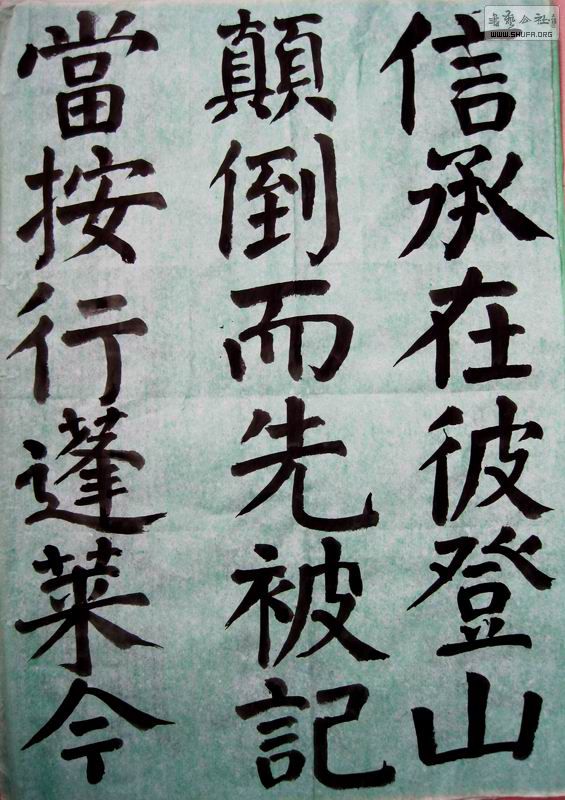 信承在彼登山
顛倒而先被記
當按行蓬莱今
書艺公社
WWW.SHUFA.ORG